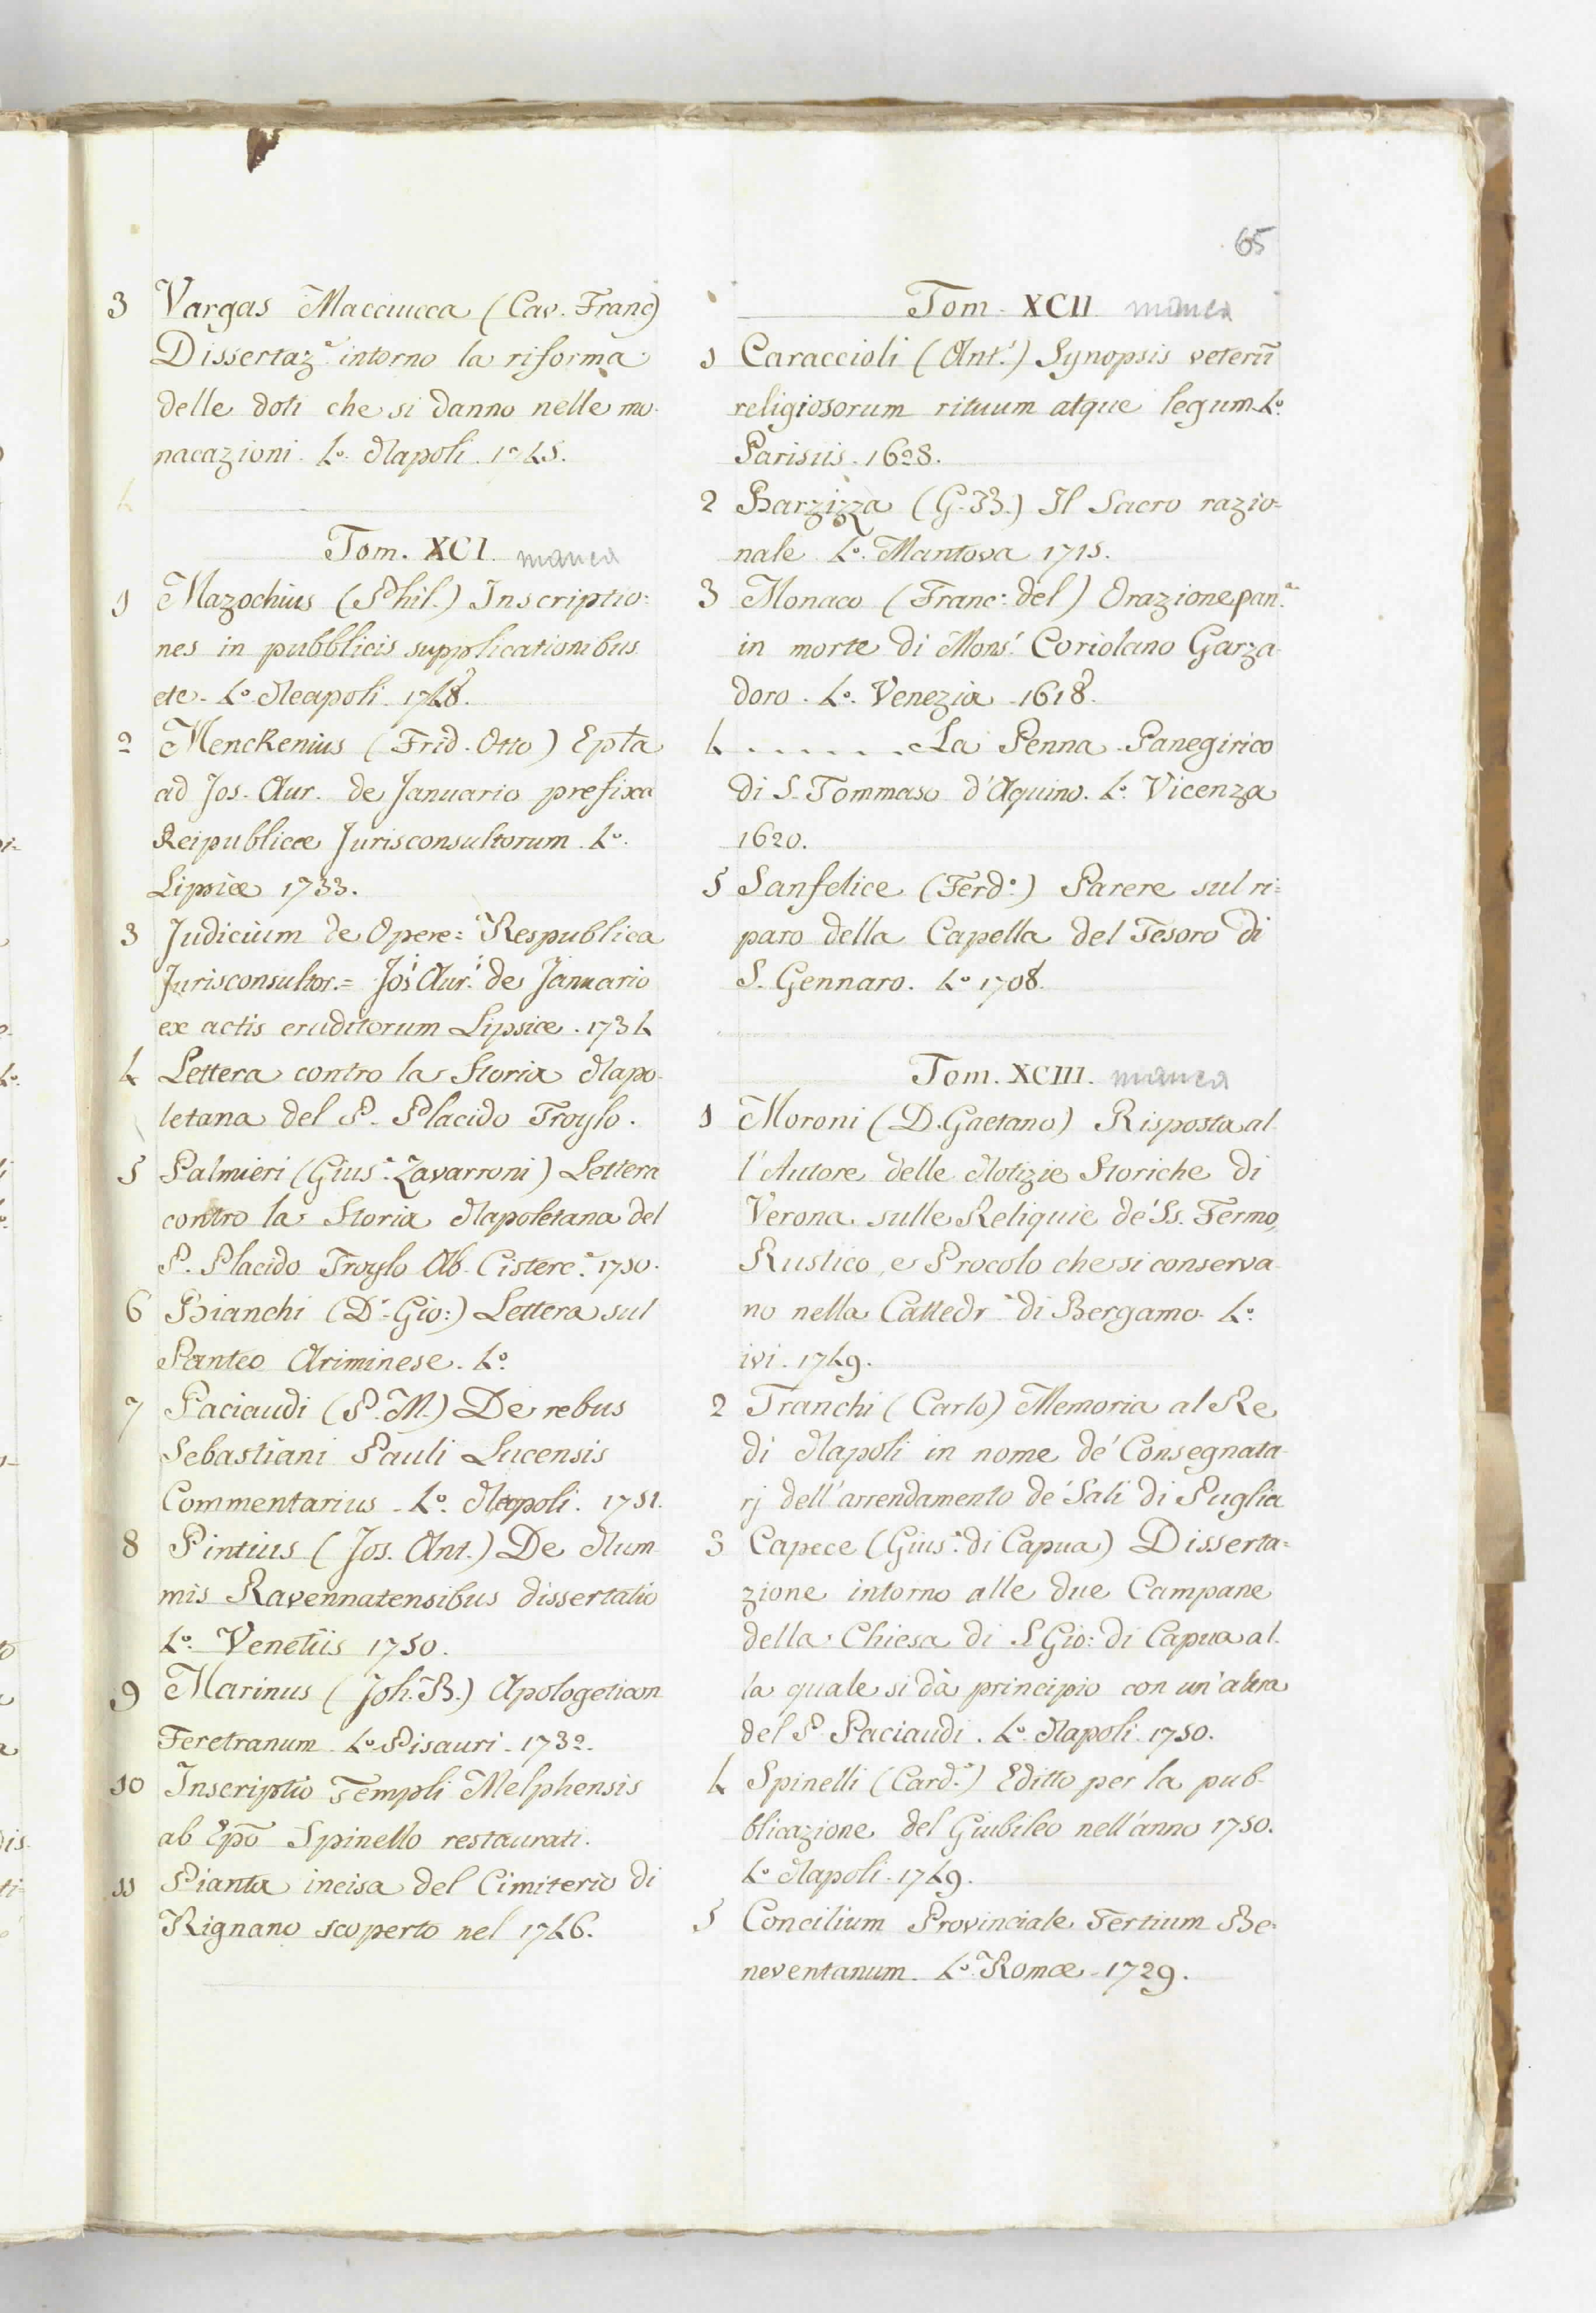 65
3 Vargas Macciucca (Cav. Franc)
Dissertaz.e intorno la riforma
delle doti che si danno nelle mo-
nacazioni. 4o. Napoli. 1745.
Tom. XCI. manca
1 Mazochius (Phil.) Inscriptio=
nes in pubblicis supplicationibus
etc. 4o. Neapoli. 1748.
2 Menckenius (Frid. Otto) Epta
ad Jos. Aur. de Januario prefixa
Reipublicæ Jurisconsultorum. 4o.
Lipsiæ 1733.
3 Judicium de Opere= Respublica
Jurisconsultor.= Jos. Aur. de Januario
ex actis eruditorum Lipsiæ. 1734
4 Lettera contro la Storia Napo-
letana del P. Placido Troylo.
5 Palmieri (Gius.e Zavarroni) Lettera
contro la Storia Napoletana del
P. Placido Troylo Ab. Cisterc.e 1750.
6 Bianchi (D.r Gio:) Lettera sul
Panteo Ariminese. 4o.
7 Paciaudi (P. M.) De rebus
Sebastiani Pauli Lucensis
Commentarius. 4o. Neapoli. 1751.
8 Pintius (Jos. Ant.) De Num-
mis Ravennatensibus dissertatio
4o. Venetiis 1750.
9 Marinus (Joh. B.) Apologeticon
Feretranum. 4o. Pisauri. 1732.
10 Inscriptio Templi Melphensis
ab Epō Spinello restaurati.
11 Pianta incisa del Cimiterio di
Rignano scoperto nel 1746.
Tom. XCII. manca
1 Caraccioli (Ant.) Synopsis veterū
religiosorum rituum atque legum. 4o.
Parisiis. 1628.
2 Barzizza (G. B.) Il Sacro razio-
nale. 4o. Mantova 1715.
3 Monaco (Franc: del) Orazione pan.a
in morte di Mons.r Coriolano Garza-
doro. 4o. Venezia. 1618.
4 . . . . . . La Penna. Panegirico
di S. Tommaso d'Aquino. 4o. Vicenza
1620.
5 Sanfelice (Ferd.o) Parere sul ri=
paro della Capella del Tesoro di
S. Gennaro. 4o 1708.
Tom. XCIII. manca
1 Moroni (D. Gaetano) Risposta al-
l'Autore delle Notizie Storiche di
Verona sulle Reliquie de' Ss. Fermo,
Rustico, e Procolo che si conserva-
no nella Cattedr.e di Bergamo. 4o.
ivi. 1749.
2 Franchi (Carlo) Memoria al Re
di Napoli in nome de' Consegnata-
rj dell'arrendamento de' Sali di Puglia
3 Capece (Gius.e di Capua) Disserta=
zione intorno alle due Campane
della Chiesa di S. Gio: di Capua al-
la quale si dà principio con un'altra
del P. Paciaudi. 4o. Napoli. 1750.
4 Spinelli (Card.e) Editto per la pub-
blicazione del Giubileo nell'anno 1750.
4o Napoli. 1749.
5 Concilium Provinciale Tertium Be-
neventanum. 4o. Romæ. 1729.